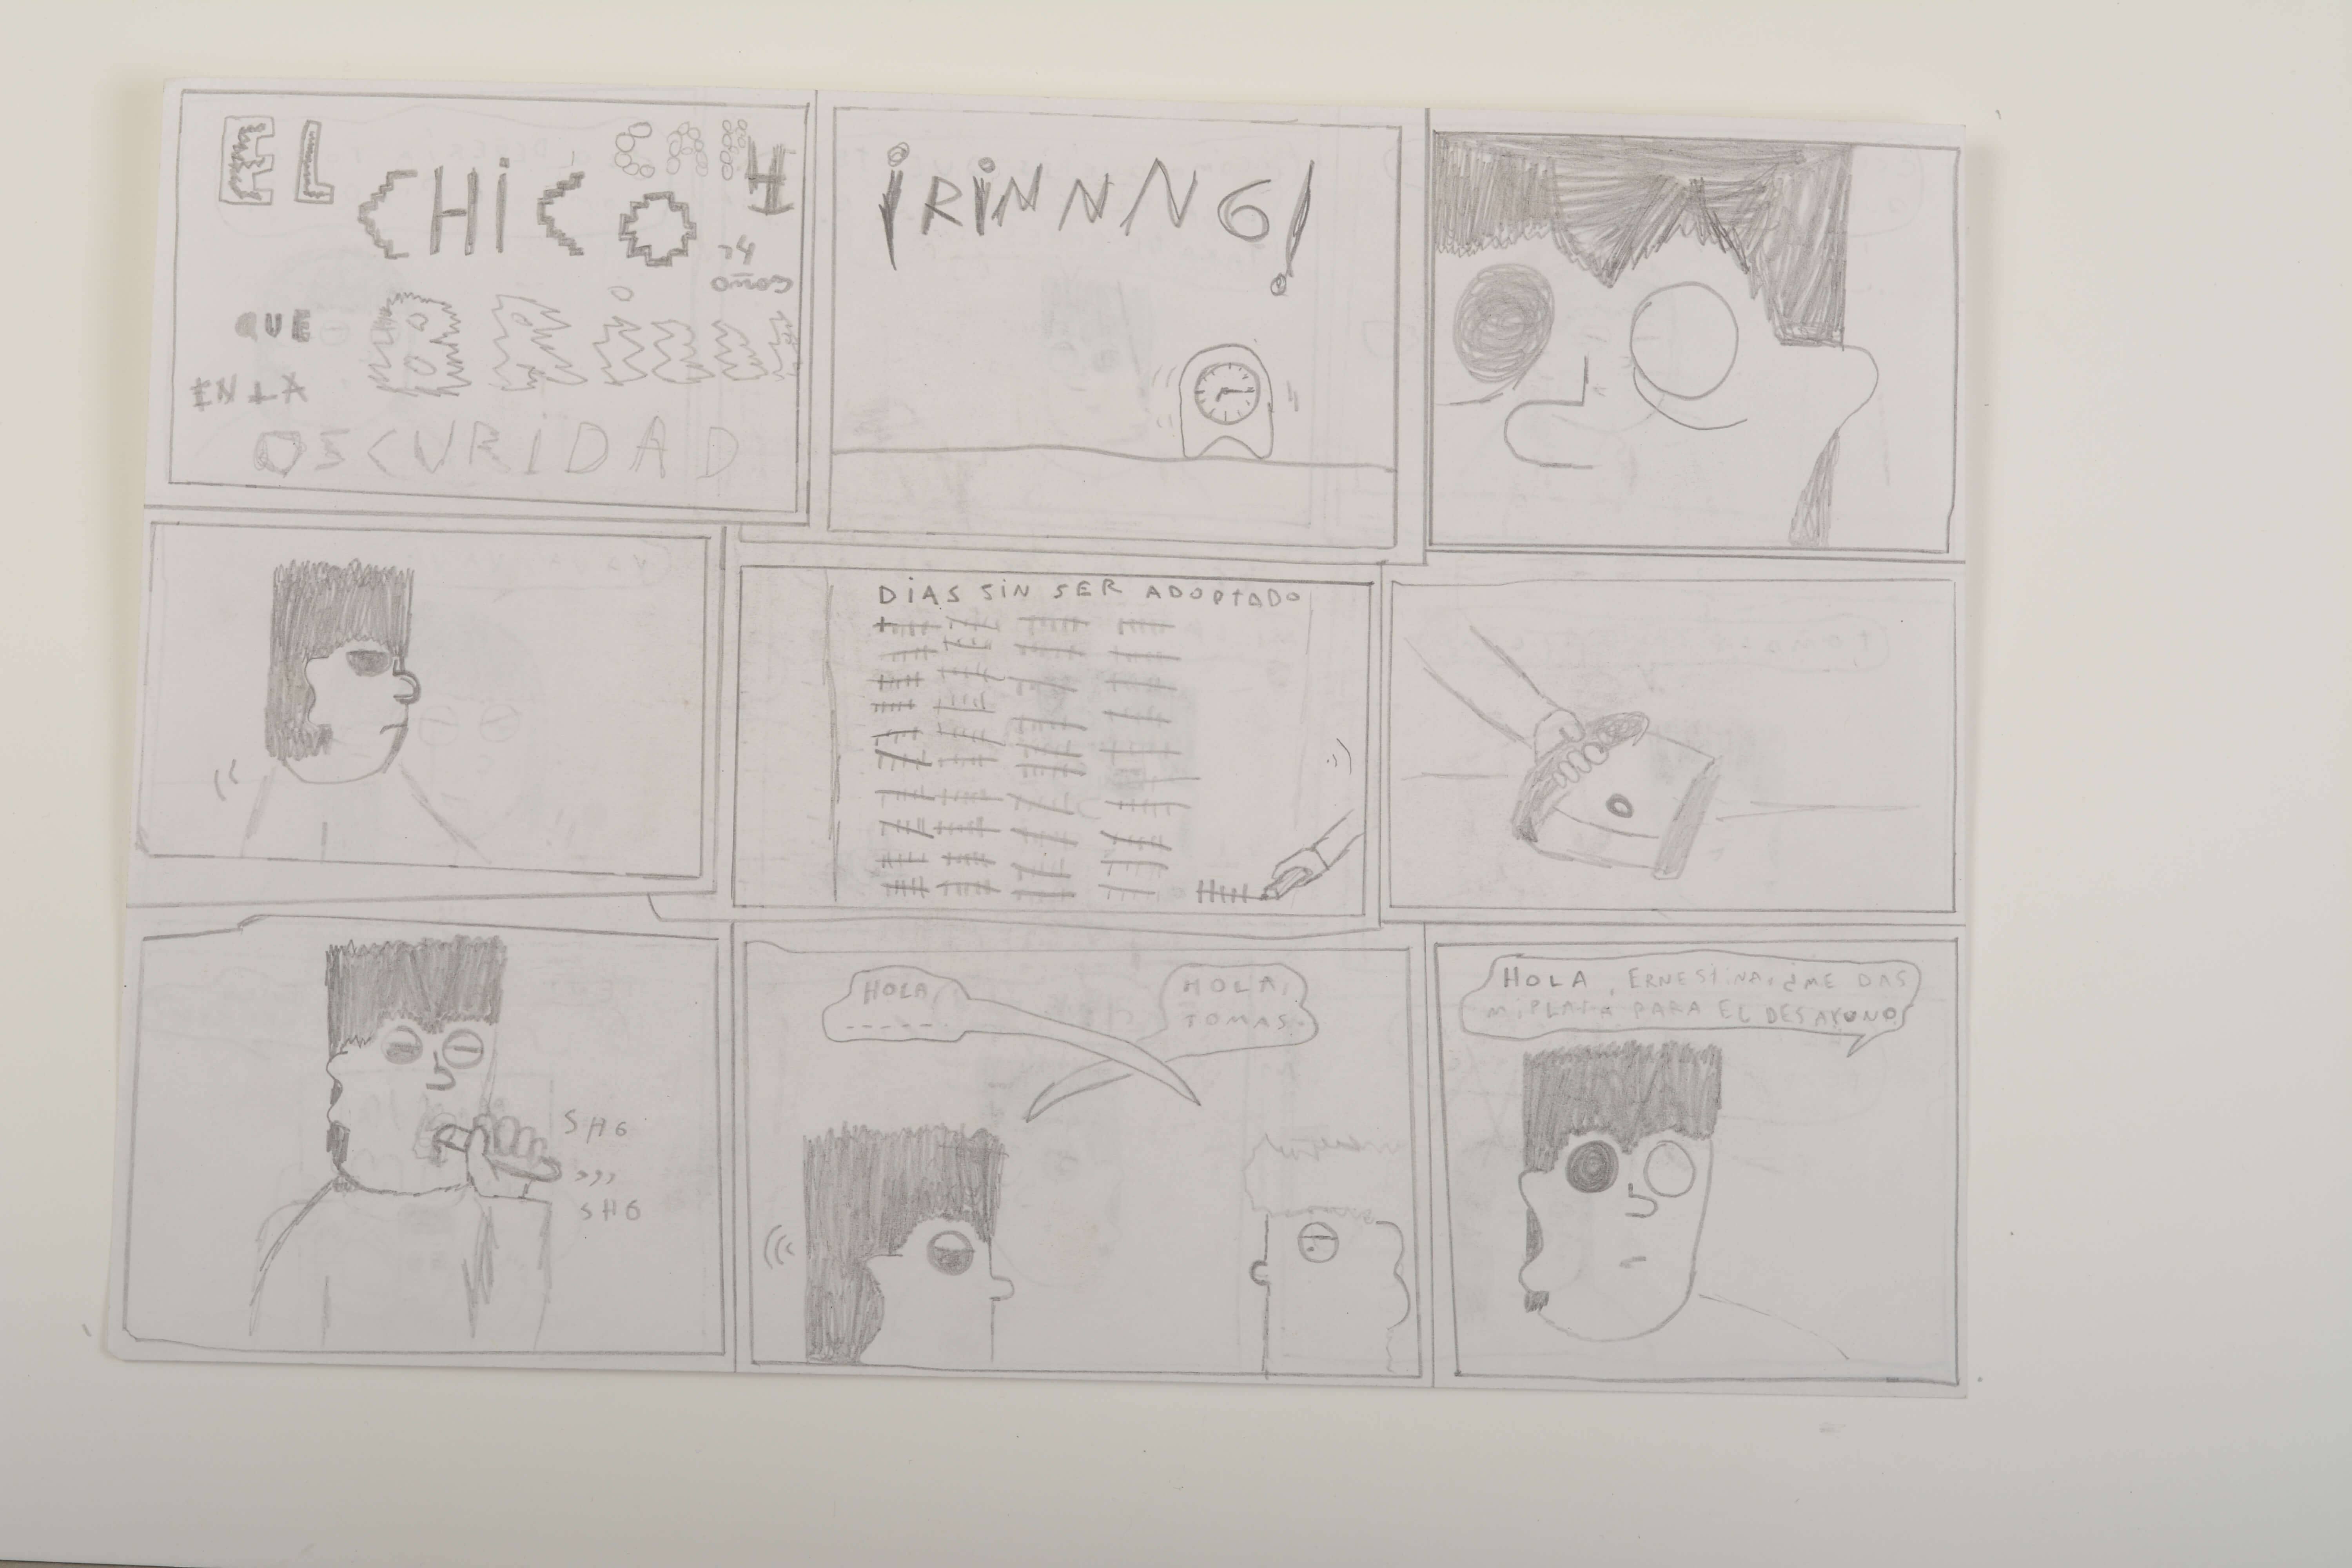 EL
CHiCO
14
años
QUE
BRiLLA
EN LA
OSCURiDAD
¡RiNNNG!
DiAS SiN SER ADOPTADO
SHG
,,,
SHG
HOLA,
------.
HOLA,
TOMAS.
HOLA, ERNESTiNA, ¿ME DAS
Mi PLATA PARA EL DESAYUNO